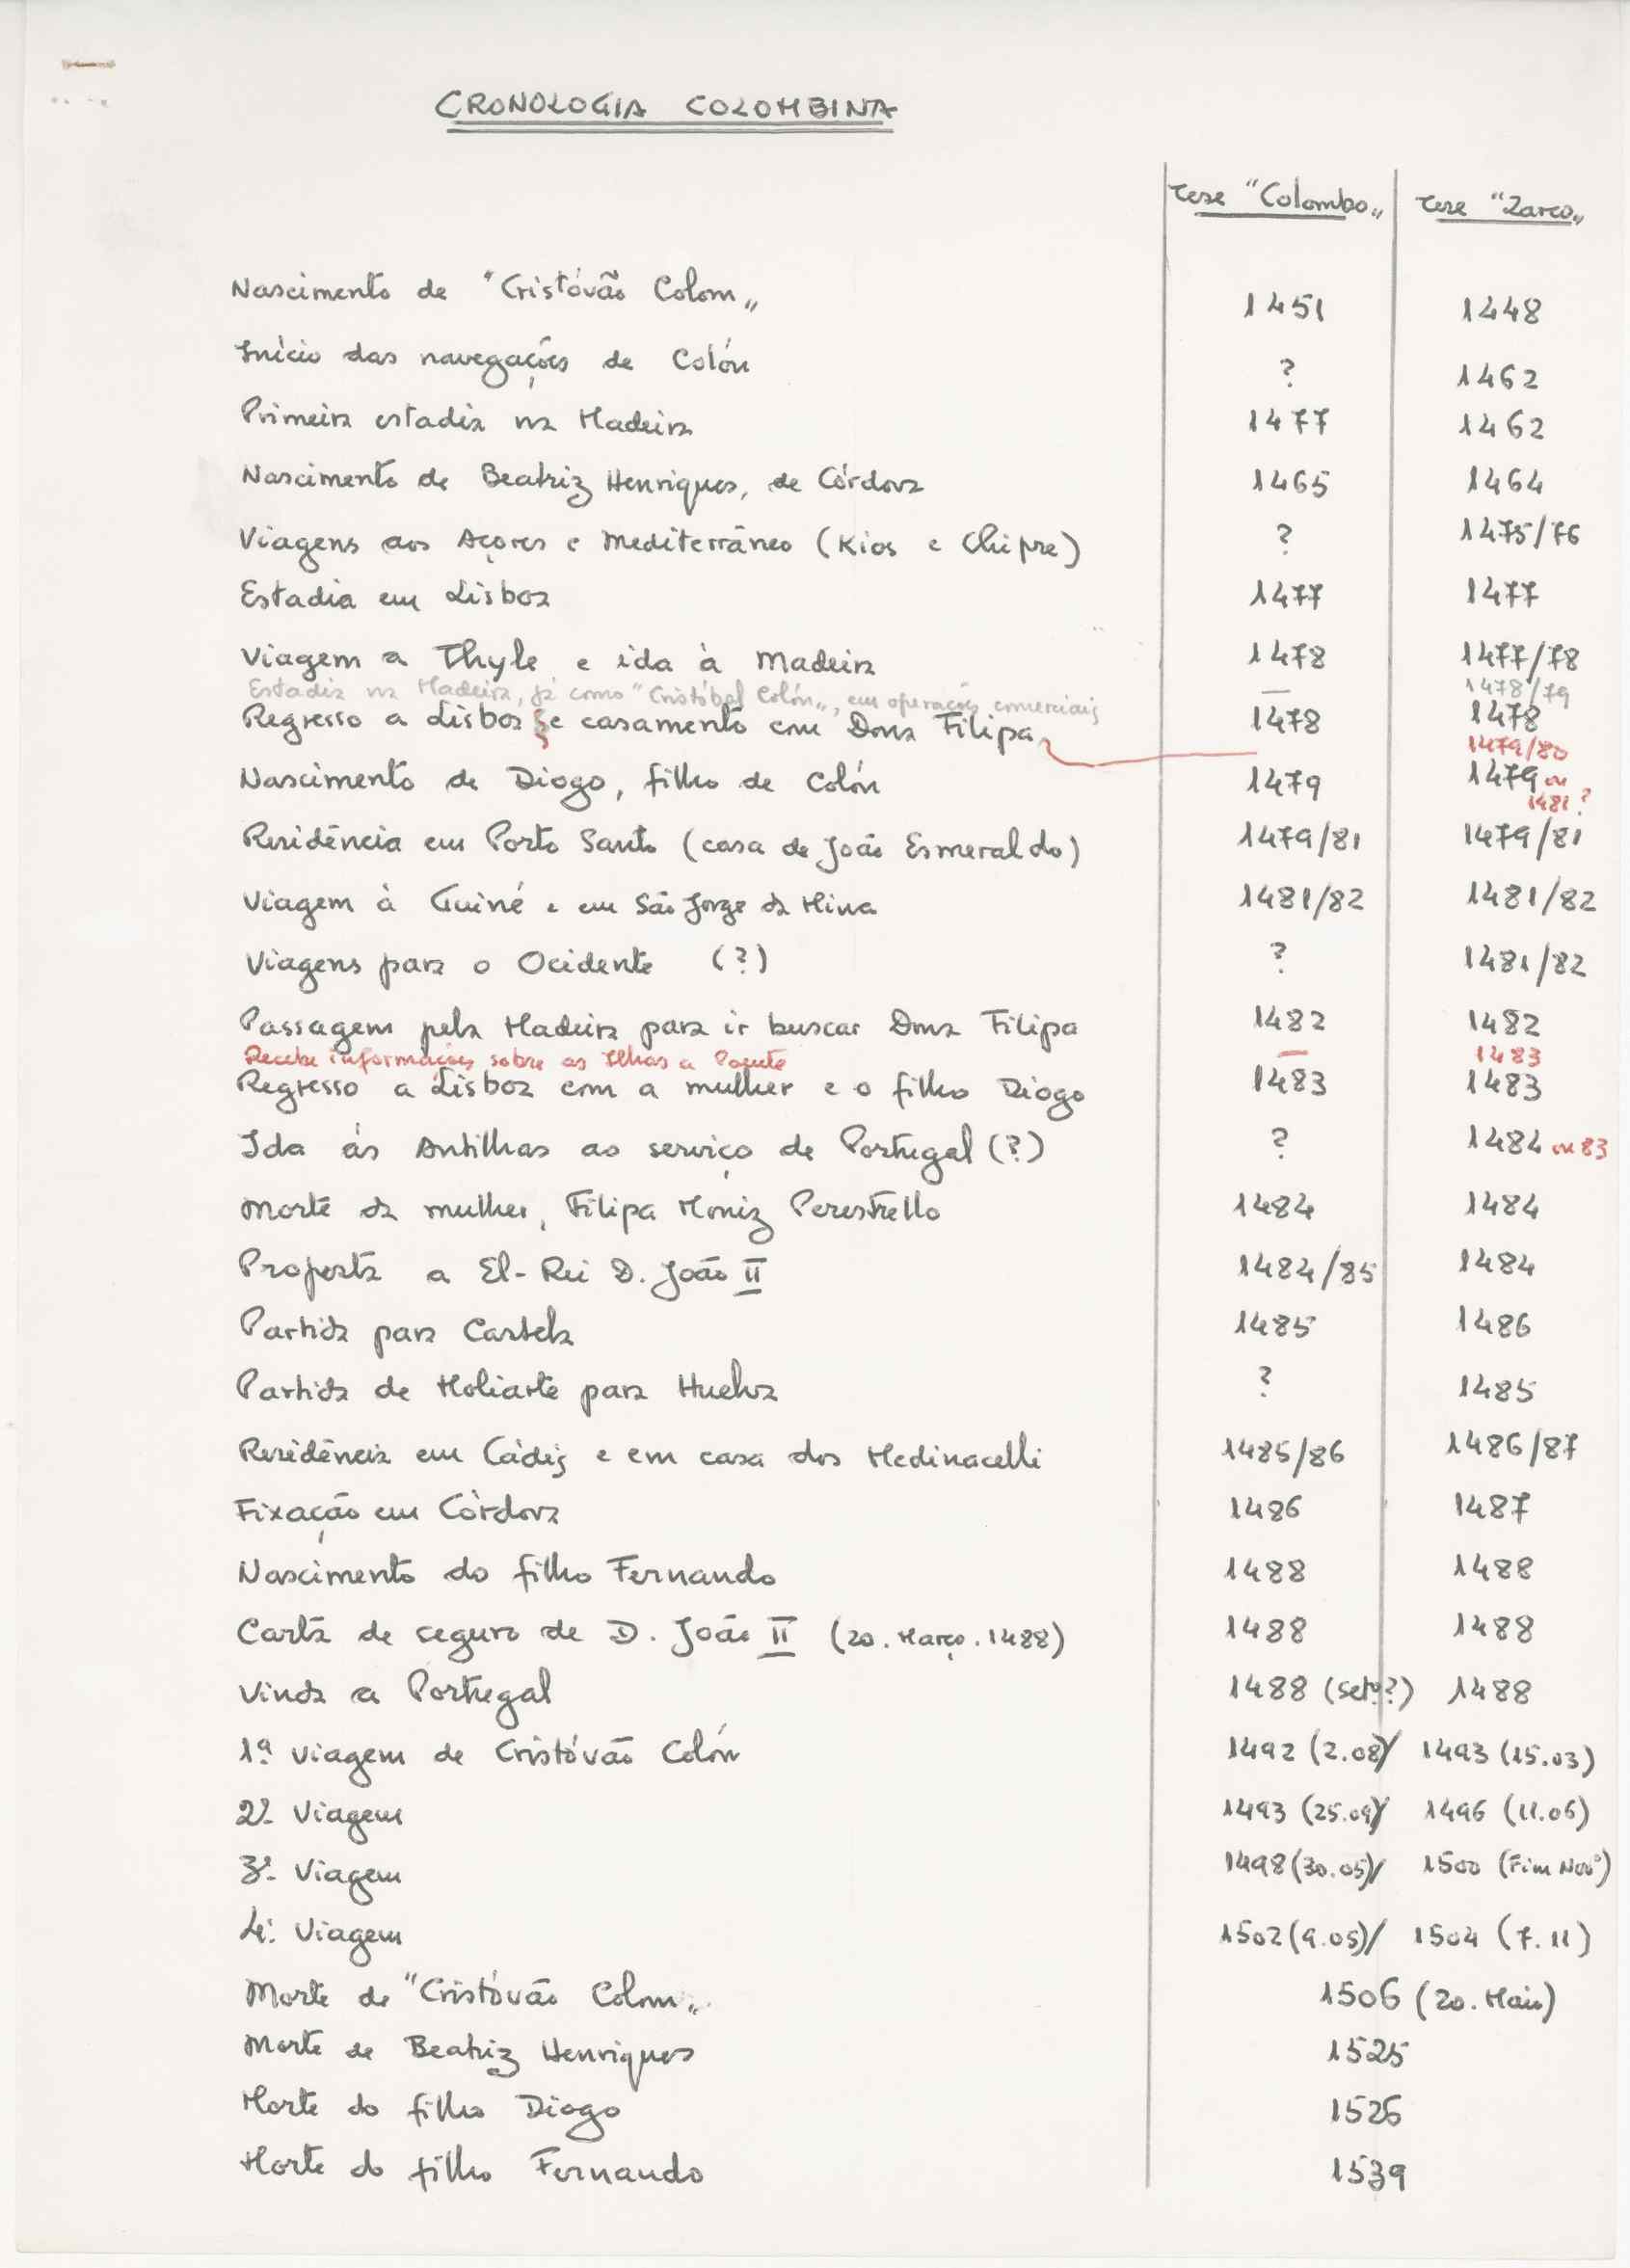 CRONOLOGIA COLOMBINA
Tese "Colombo„ Tese "Zarco„
Nascimento de "Cristóvão Colom„ 1451 1448
Início das navegações de Colón ? 1462
Primeira estadia na Madeira 1477 1462
Nascimento de Beatriz Henriques, de Córdova 1465 1464
Viagens aos Açores e Mediterrâneo (Kios e Chipre) ? 1475/76
Estadia em Lisboa 1477 1477
Viagem a Thyle e ida à Madeira 1478 1477/78
Estadia na Madeira, já como "Cristóbal Colón„, em operações comerciais — 1478/79
Regresso a Lisboa e casamento com Dona Filipa 1478 1478
1479/80
Nascimento de Diogo, filho de Colón 1479 1479 ou
1481?
Residência em Porto Santo (casa de João Esmeraldo) 1479/81 1479/81
Viagem à Guiné e em São Jorge da Mina 1481/82 1481/82
Viagens para o Ocidente (?) ? 1481/82
Passagem pela Madeira para ir buscar Dona Filipa 1482 1482
Recebe informações sobre as Ilhas a Poente — 1483
Regresso a Lisboa com a mulher e o filho Diogo 1483 1483
Ida às Antilhas ao serviço de Portugal (?) ? 1484 ou 83
Morte da mulher, Filipa Moniz Perestrello 1484 1484
Proposta a El-Rei D. João II 1484/85 1484
Partida para Castela 1485 1486
Partida de Moliarte para Huelva ? 1485
Residência em Cádiz e em casa dos Medinacelli 1485/86 1486/87
Fixação em Córdova 1486 1487
Nascimento do filho Fernando 1488 1488
Carta de seguro de D. João II (20. Março. 1488) 1488 1488
Vinda a Portugal 1488 (Setº?) 1488
1ª Viagem de Cristóvão Colón 1492 (2.08)/ 1493 (15.03)
2ª Viagem 1493 (25.09)/ 1496 (11.06)
3ª Viagem 1498 (30.05)/ 1500 (Fim Novº)
4ª Viagem 1502 (9.05)/ 1504 (7.11)
Morte de "Cristóvão Colom„ 1506 (20. Maio)
Morte de Beatriz Henriques 1525
Morte do filho Diogo 1526
Morte do filho Fernando 1539